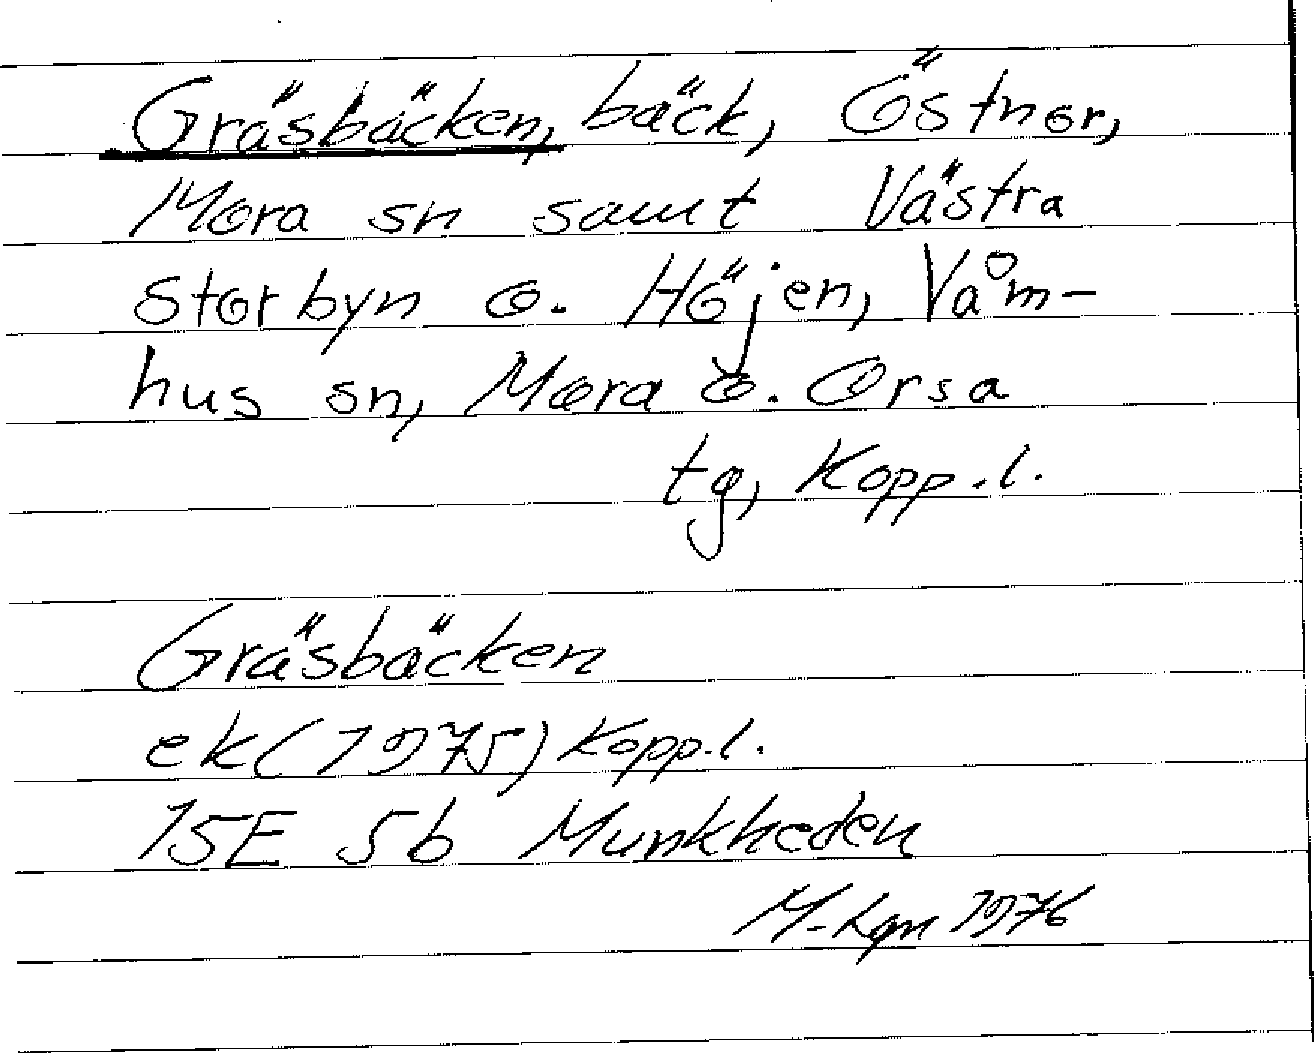 Gräsbäcken, bäck, Östnor,
Mora sn samt Västra
Storbyn o. Höjen, Våm-
hus sn, Mora o. Orsa
tg, Kopp.l.
Gräsbäcken
ek (1975) Kopp.l.
15E 5b Munkheden
M-Lgn 1976